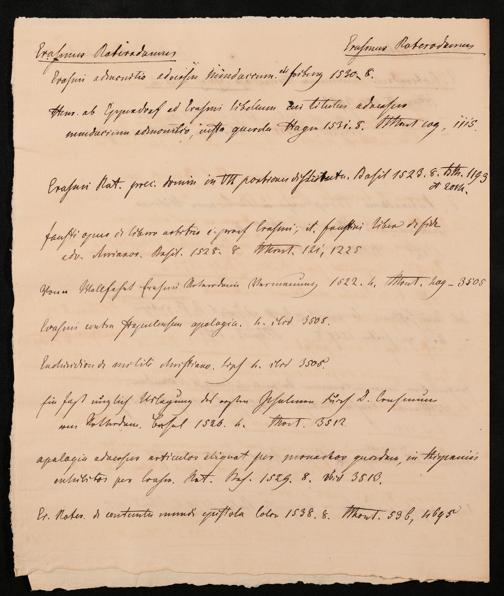 Erasmus Roterodamus Erasmus Roterodamus
Erasmi admonitio adversus mendacium. Friburg 1530. 8.
Henr. ab Eppendorf ad Erasmi libellum cui titulus adversus
mendacium admonitio, iusta querela Hagen 1531. 8. 1115.
Erasmi Rot. prec. domin. in VII portiones distributa. Basil 1523. 8. 1193
et 2014.
fausti opus de libero arbitrio c. praef. Erasmi, it. faustini liber de fide
adv. Arrianos. Basil. 1528. 8. 121, 1225
Vonn Wallfahrt Erasmi Roterodami Vermanung 1522. 4. 3505
Erasmi contra Stapulensem apologia. 4. ibid 3505.
Enchiridion de milite christiano. Lips. 4. ibid 3508.
Ein fast nutzlich Uslegung des ersten Psalmen durch D. Erasmum
von Rotterdam. Basel 1520. 4. 3512
apologia adversus articulos aliquot per monachos quosdam, in Hispaniis
exhibitos per Erasm. Rot. Bas. 1529. 8. ibid 3513.
Er. Roter. de contemtu mundi epistola Colon 1538. 8. 536, 4695